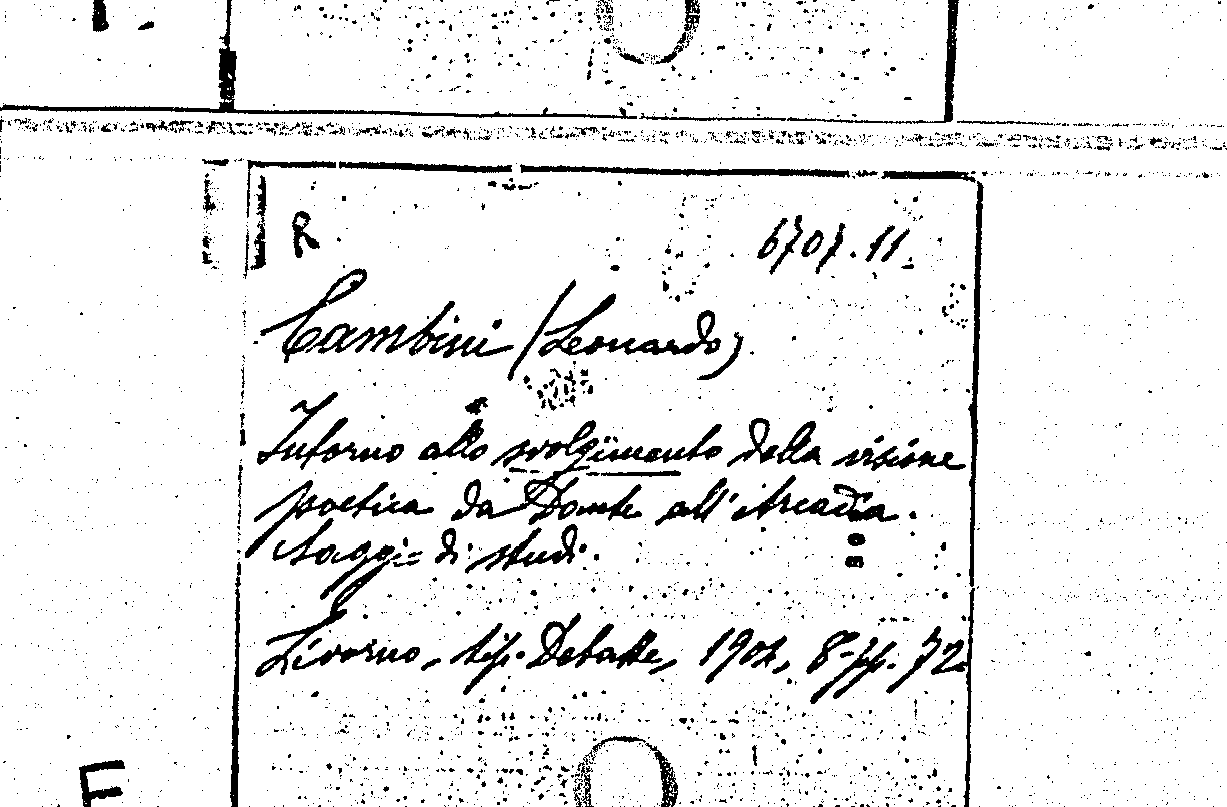 R
6707.11.
Cambini (Leonardo).
Intorno allo svolgimento della visione
poetica da Dante all'Arcadia.
Saggi di studi.
Livorno, tip. Debatte, 1904, 8º pp. 72.